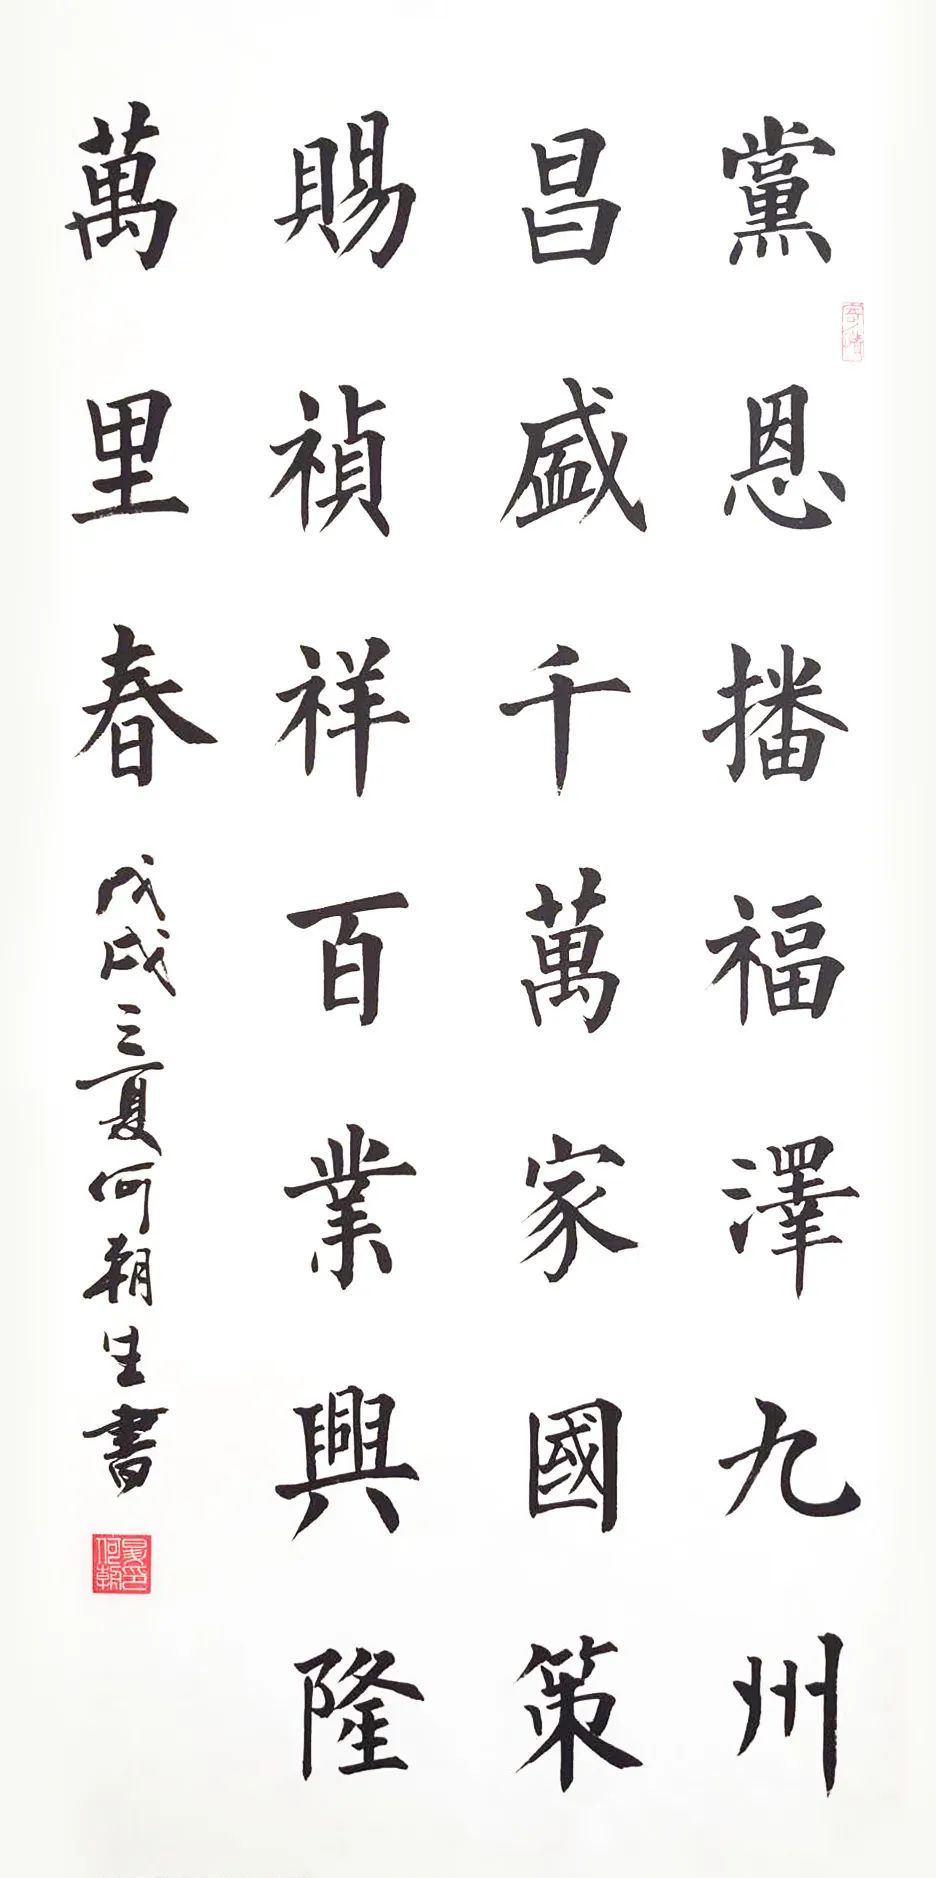 黨恩播福澤九州
昌盛千萬家國策
賜禎祥百業興隆
萬里春
戊戌三夏何朝生書